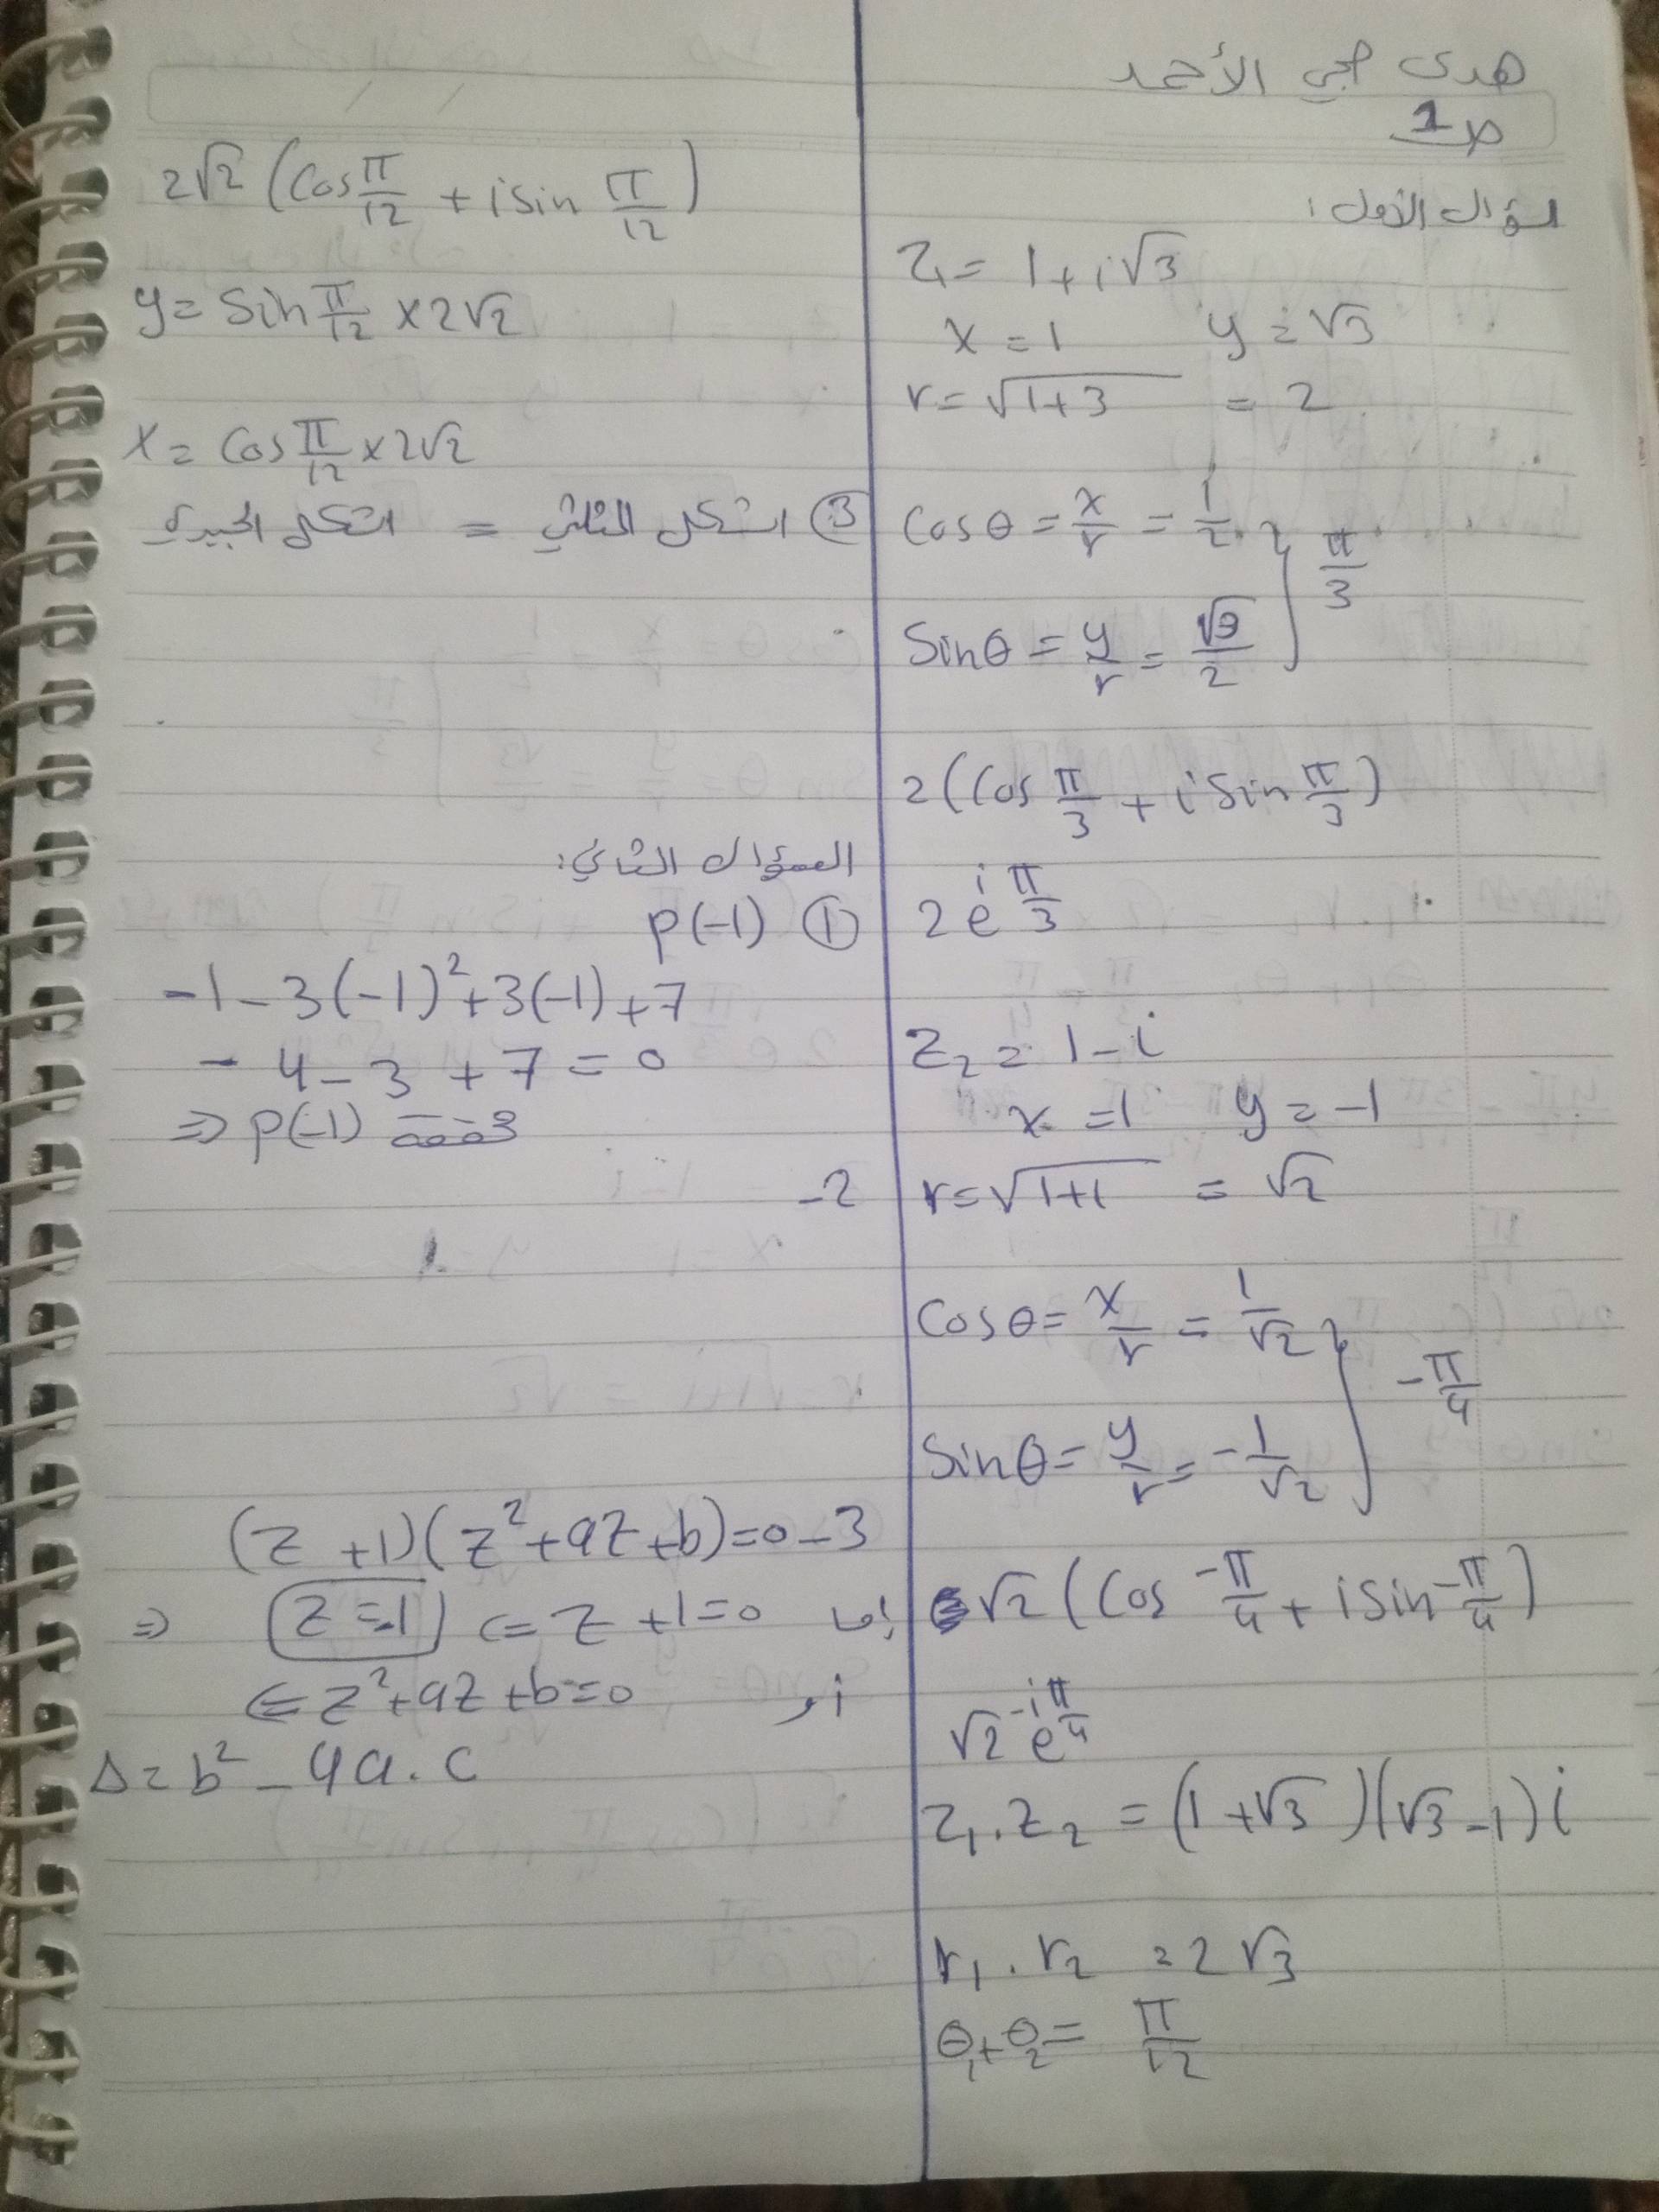 هدى الأحمد
ص 1
لسؤال الأول:
Z₁ = 1 + i√3
x = 1 y = √3
r = √(1+3) = 2
Cos θ = x/r = 1/2
π/3
Sin θ = y/r = √3/2
2 (Cos π/3 + i Sin π/3)
2 e^(i π/3)
Z₂ = 1 - i
x = 1 y = -1
r = √(1+1) = √2
Cos θ = x/r = 1/√2
-π/4
Sin θ = y/r = -1/√2
√2 (Cos -π/4 + i Sin -π/4)
√2 e^(-i π/4)
Z₁ . Z₂ = (1 + √3)(√3 - 1) i
r₁ . r₂ = 2√3
θ₁ + θ₂ = π/12
2√2 (Cos π/12 + i Sin π/12)
y = Sin π/12 × 2√2
x = Cos π/12 × 2√2
③ الشكل المثلثي = الشكل الجبري
السؤال الثاني:
① P(-1)
-1 - 3(-1)² + 3(-1) + 7
- 4 - 3 + 7 = 0
⇒ P(-1) محققة
2-
3- (Z + 1)(Z² + aZ + b) = 0
إما Z + 1 = 0 ⇐ Z = -1 ⇒
أو Z² + aZ + b = 0 ⇐
Δ = b² - 4a . c